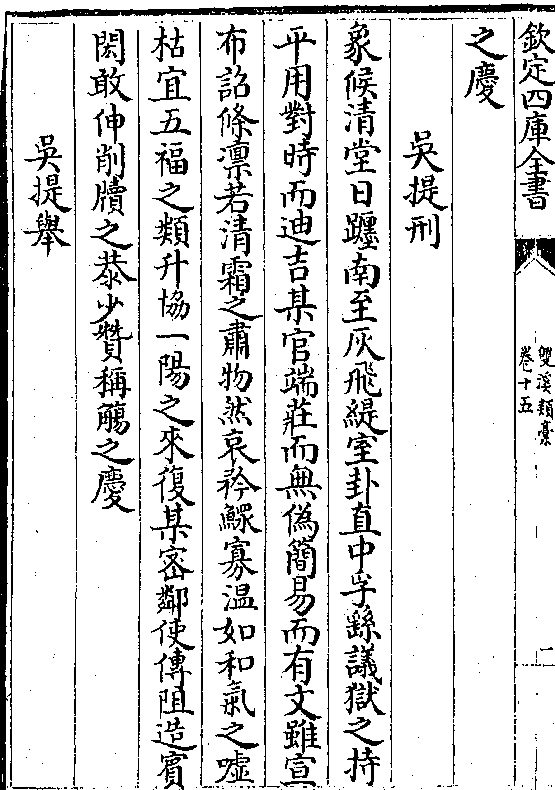 欽定四庫全書
雙溪類藁
卷十五
一
之慶
吳提刑
象候清堂日躔南至灰飛緹室卦直中孚繇議獄之持
平用對時而迪吉某官端莊而無偽簡易而有文雖宣
布詔條凛若清霜之肅物然哀矜鰥寡温如和氣之嘘
枯宜五福之類升協一陽之來復某密鄰使傳阻造賓
閎敢伸削牘之恭少贊稱觴之慶
吳提舉